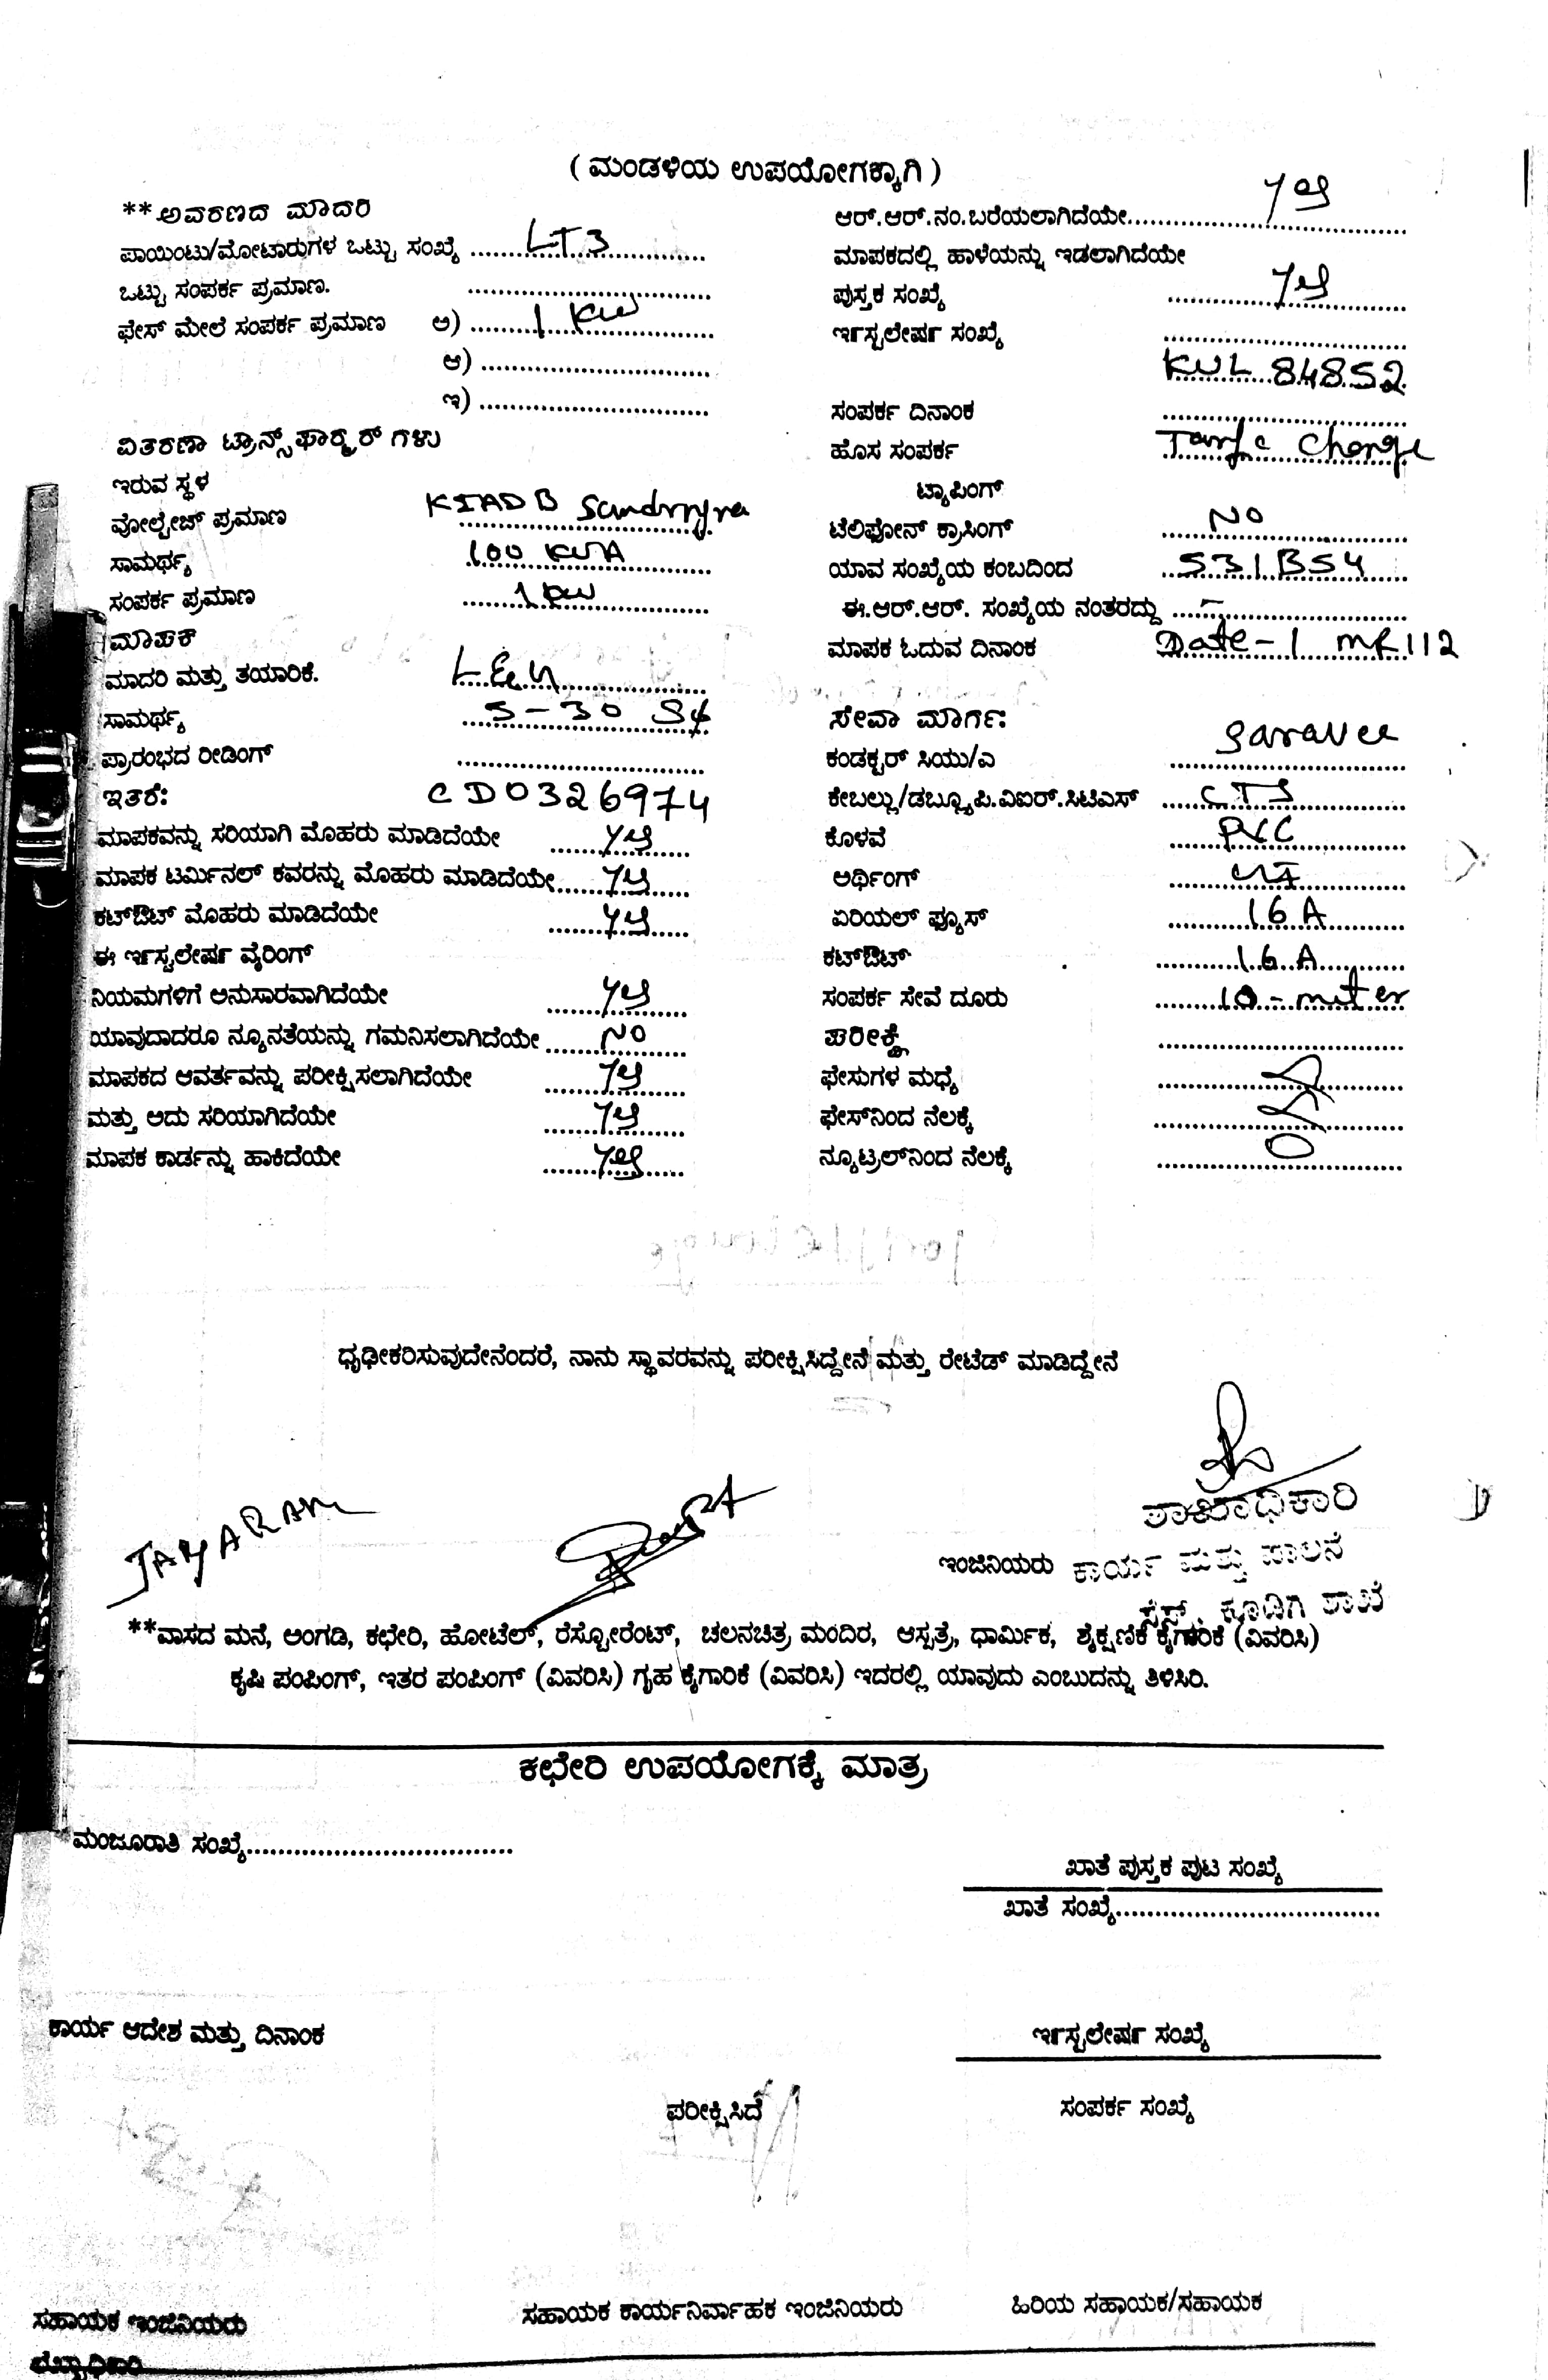 ( ಮಂಡಳಿಯ ಉಪಯೋಗಕ್ಕಾಗಿ )
**ಅವರಣದ ಮಾದರಿ
ಪಾಯಿಂಟು/ಮೋಟಾರುಗಳ ಒಟ್ಟು ಸಂಖ್ಯೆ ........LT3........
ಒಟ್ಟು ಸಂಪರ್ಕ ಪ್ರಮಾಣ. ................
ಫೇಸ್ ಮೇಲೆ ಸಂಪರ್ಕ ಪ್ರಮಾಣ ಅ) ........1 KW........
ಆ) ................
ಇ) ................
ವಿತರಣಾ ಟ್ರಾನ್ಸ್‌ಫಾರ್ಮರ್ ಗಳು
ಇರುವ ಸ್ಥಳ
ವೋಲ್ಟೇಜ್ ಪ್ರಮಾಣ KIADB
ಸಾಮರ್ಥ್ಯ 100 KVA
ಸಂಪರ್ಕ ಪ್ರಮಾಣ ........1 KW........
ಮಾಪಕ
ಮಾದರಿ ಮತ್ತು ತಯಾರಿಕೆ. L&G
ಸಾಮರ್ಥ್ಯ 5-30
ಪ್ರಾರಂಭದ ರೀಡಿಂಗ್ ................
ಇತರೆ: CD0326974
ಮಾಪಕವನ್ನು ಸರಿಯಾಗಿ ಮೊಹರು ಮಾಡಿದೆಯೇ ....yes....
ಮಾಪಕ ಟರ್ಮಿನಲ್ ಕವರನ್ನು ಮೊಹರು ಮಾಡಿದೆಯೇ....yes....
ಕಟ್‌ಔಟ್ ಮೊಹರು ಮಾಡಿದೆಯೇ ....yes....
ಈ ಇನ್‌ಸ್ಟಲೇಷನ್ ವೈರಿಂಗ್
ನಿಯಮಗಳಿಗೆ ಅನುಸಾರವಾಗಿದೆಯೇ ....yes....
ಯಾವುದಾದರೂ ನ್ಯೂನತೆಯನ್ನು ಗಮನಿಸಲಾಗಿದೆಯೇ ....NO....
ಮಾಪಕದ ಆವರ್ತವನ್ನು ಪರೀಕ್ಷಿಸಲಾಗಿದೆಯೇ ....yes....
ಮತ್ತು ಅದು ಸರಿಯಾಗಿದೆಯೇ ....yes....
ಮಾಪಕ ಕಾರ್ಡನ್ನು ಹಾಕಿದೆಯೇ ....yes....
ಆರ್.ಆರ್.ನಂ.ಬರೆಯಲಾಗಿದೆಯೇ........yes........
ಮಾಪಕದಲ್ಲಿ ಹಾಳೆಯನ್ನು ಇಡಲಾಗಿದೆಯೇ
ಪುಸ್ತಕ ಸಂಖ್ಯೆ ........yes........
ಇನ್‌ಸ್ಟಲೇಷನ್ ಸಂಖ್ಯೆ ................
KUL 84852
ಸಂಪರ್ಕ ದಿನಾಂಕ ................
ಹೊಸ ಸಂಪರ್ಕ Change
ಟ್ಯಾಪಿಂಗ್
ಟೆಲಿಫೋನ್ ಕ್ರಾಸಿಂಗ್ NO
ಯಾವ ಸಂಖ್ಯೆಯ ಕಂಬದಿಂದ ..531BS4..
ಈ.ಆರ್.ಆರ್. ಸಂಖ್ಯೆಯ ನಂತರದ್ದು ....-....
ಮಾಪಕ ಓದುವ ದಿನಾಂಕ Date-1 MR112
ಸೇವಾ ಮಾರ್ಗ:
ಕಂಡಕ್ಟರ್ ಸಿಯು/ಎ
ಕೇಬಲ್ಲು/ಡಬ್ಲ್ಯೂಪಿ.ವಿಐಆರ್.ಸಿಟಿಎಸ್ ....CTS....
ಕೊಳವೆ PVC
ಅರ್ಥಿಂಗ್
ಏರಿಯಲ್ ಫ್ಯೂಸ್ 16 A
ಕಟ್‌ಔಟ್ ........16 A........
ಸಂಪರ್ಕ ಸೇವೆ ದೂರು ....10-meter
ಪರೀಕ್ಷೆ ................
ಫೇಸುಗಳ ಮಧ್ಯೆ ................
ಫೇಸ್‌ನಿಂದ ನೆಲಕ್ಕೆ ................
ನ್ಯೂಟ್ರಲ್‌ನಿಂದ ನೆಲಕ್ಕೆ ................
ಧೃಢೀಕರಿಸುವುದೇನೆಂದರೆ, ನಾನು ಸ್ಥಾವರವನ್ನು ಪರೀಕ್ಷಿಸಿದ್ದೇನೆ ಮತ್ತು ರೇಟೆಡ್ ಮಾಡಿದ್ದೇನೆ
JAYARAM
ಶಾಖಾಧಿಕಾರಿ
ಇಂಜಿನಿಯರು ಕಾರ್ಯ ಮತ್ತು ಪಾಲನೆ
ಸೆಸ್ಕ್, ಕೂಡಿಗಿ ಶಾಖೆ
**ವಾಸದ ಮನೆ, ಅಂಗಡಿ, ಕಛೇರಿ, ಹೋಟೆಲ್, ರೆಸ್ಟೋರೆಂಟ್, ಚಲನಚಿತ್ರ ಮಂದಿರ, ಆಸ್ಪತ್ರೆ, ಧಾರ್ಮಿಕ, ಶೈಕ್ಷಣಿಕ ಕೈಗಾರಿಕೆ (ವಿವರಿಸಿ)
ಕೃಷಿ ಪಂಪಿಂಗ್, ಇತರ ಪಂಪಿಂಗ್ (ವಿವರಿಸಿ) ಗೃಹ ಕೈಗಾರಿಕೆ (ವಿವರಿಸಿ) ಇದರಲ್ಲಿ ಯಾವುದು ಎಂಬುದನ್ನು ತಿಳಿಸಿರಿ.
ಕಛೇರಿ ಉಪಯೋಗಕ್ಕೆ ಮಾತ್ರ
ಮಂಜೂರಾತಿ ಸಂಖ್ಯೆ................
ಖಾತೆ ಪುಸ್ತಕ ಪುಟ ಸಂಖ್ಯೆ
ಖಾತೆ ಸಂಖ್ಯೆ................
ಕಾರ್ಯ ಆದೇಶ ಮತ್ತು ದಿನಾಂಕ
ಇನ್‌ಸ್ಟಲೇಷನ್ ಸಂಖ್ಯೆ
ಪರೀಕ್ಷಿಸಿದೆ
ಸಂಪರ್ಕ ಸಂಖ್ಯೆ
ಸಹಾಯಕ ಇಂಜಿನಿಯರು
ಸಹಾಯಕ ಕಾರ್ಯನಿರ್ವಾಹಕ ಇಂಜಿನಿಯರು
ಹಿರಿಯ ಸಹಾಯಕ/ಸಹಾಯಕ